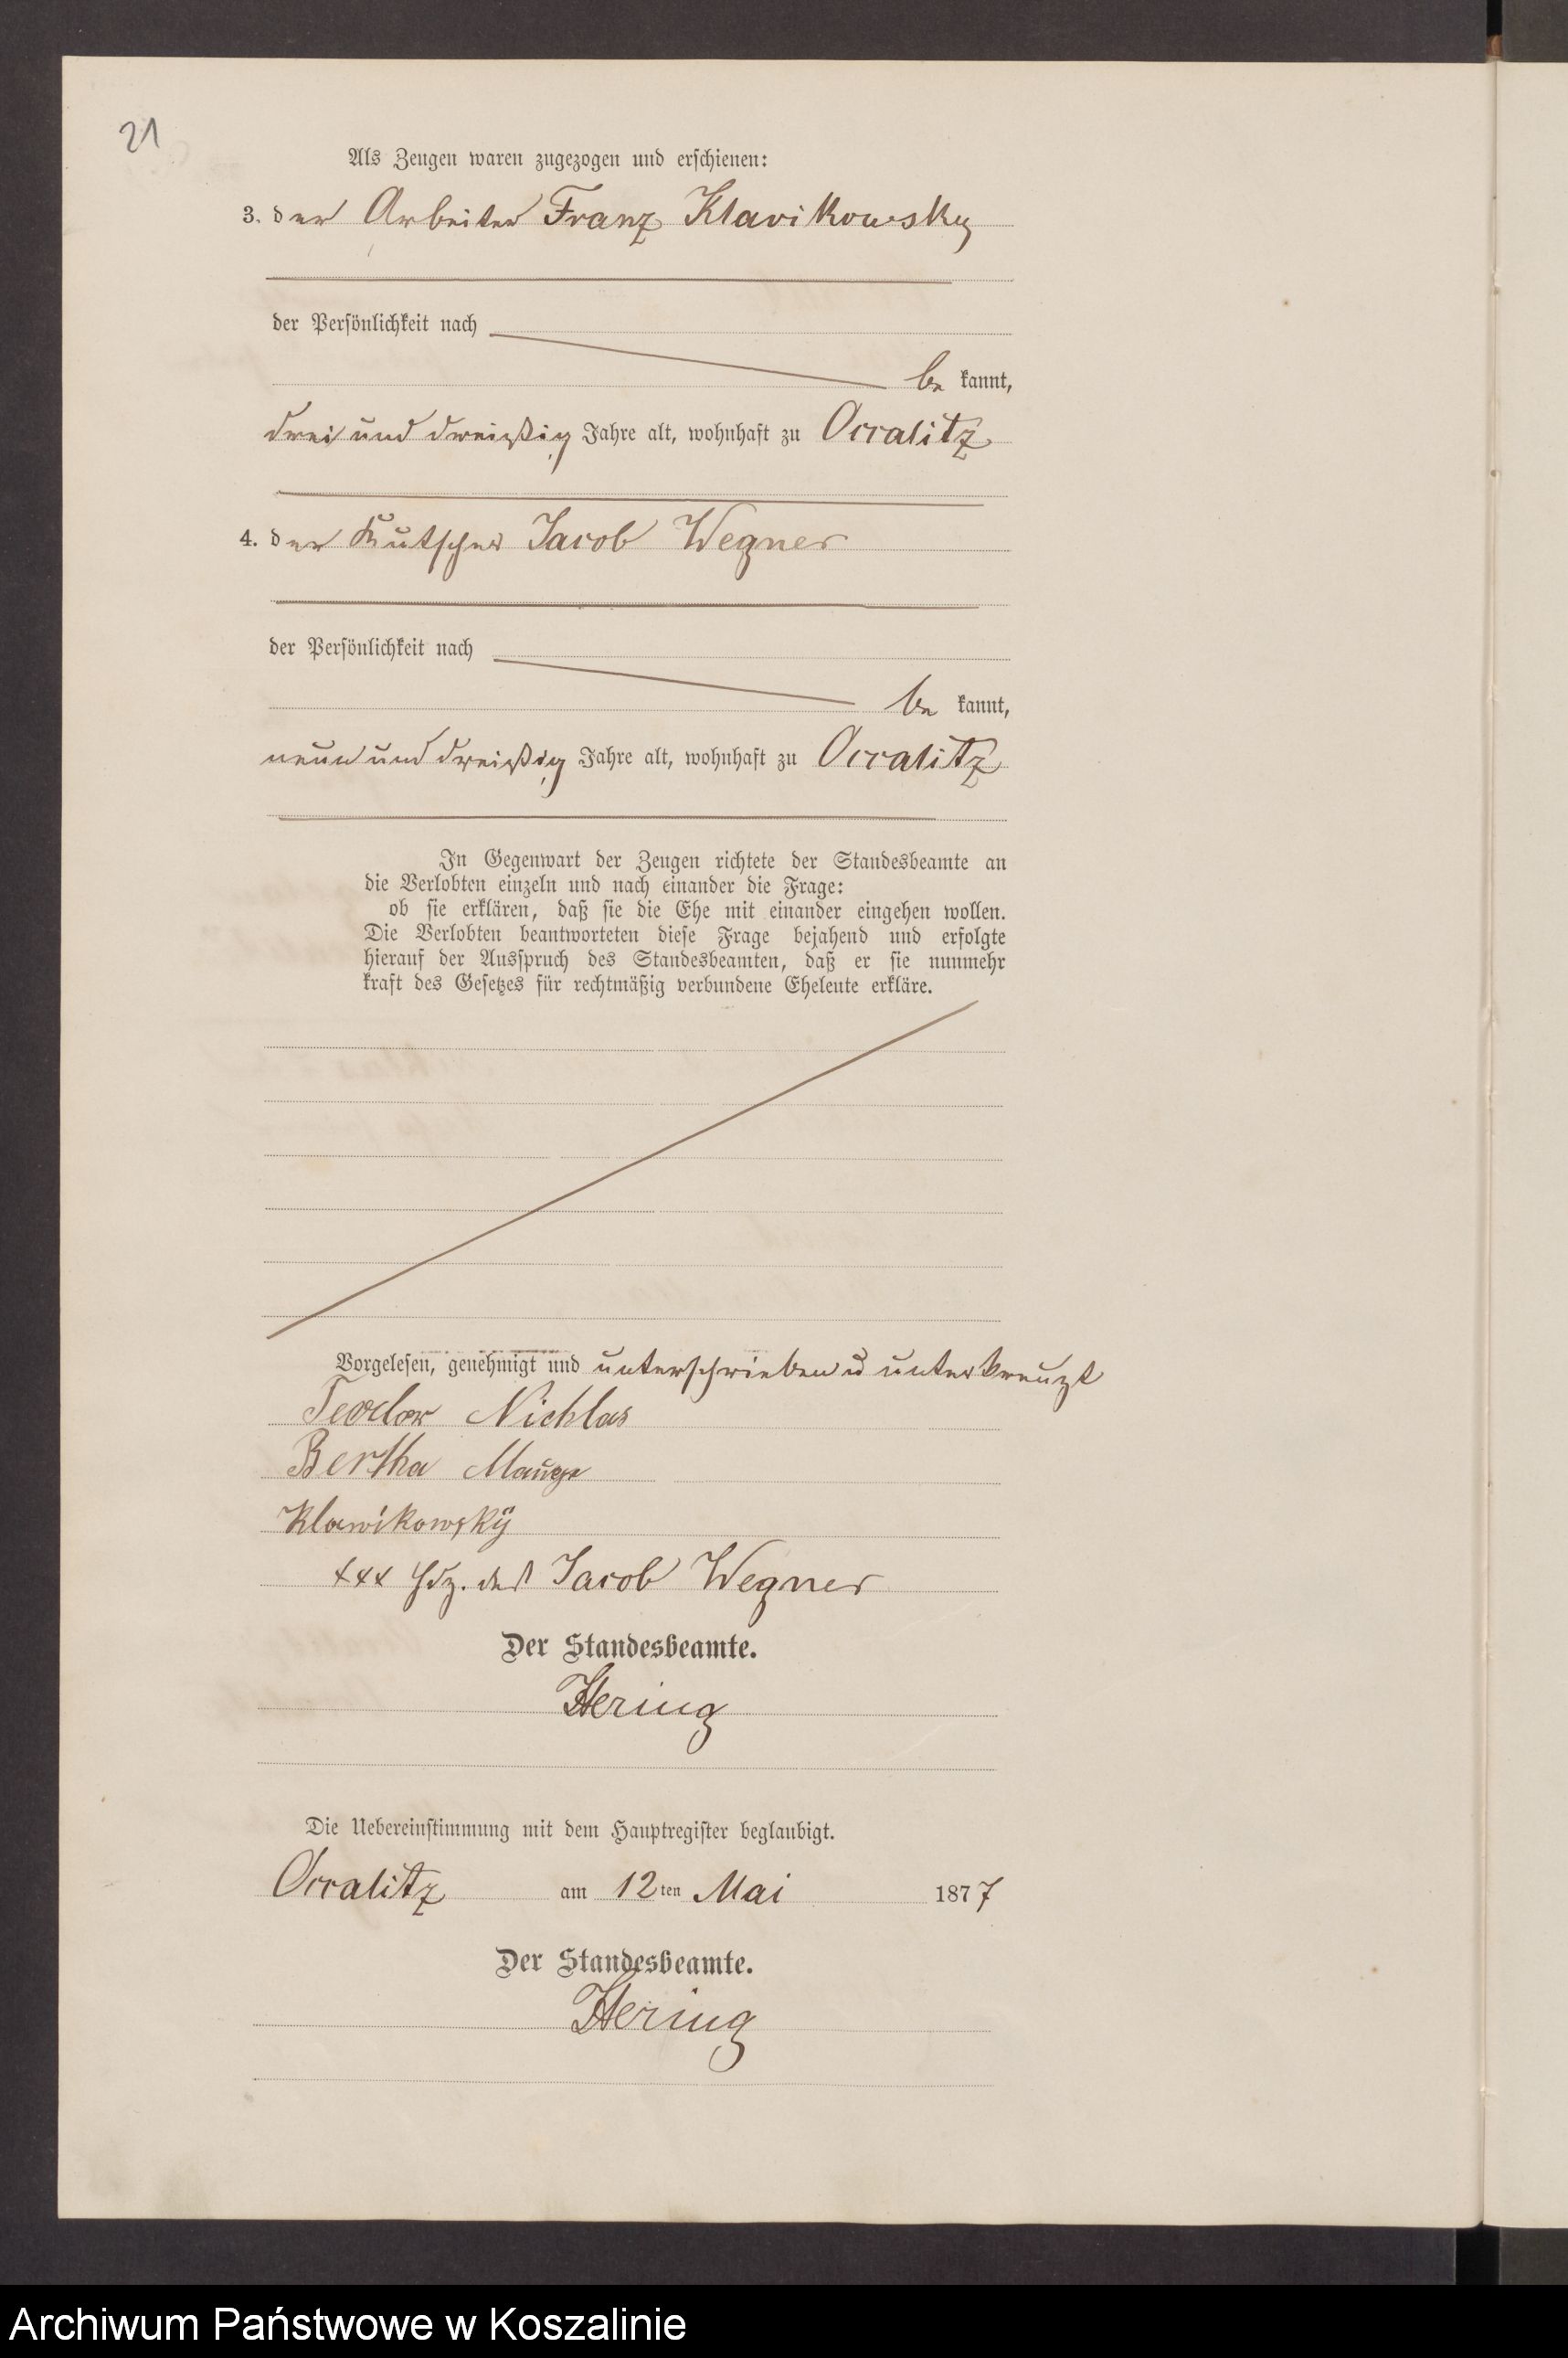 21
Als Zeugen waren zugezogen und erschienen:
3. der Arbeiter Franz Klavikowsky
der Persönlichkeit nach
be kannt,
drei und dreißig Jahre alt, wohnhaft zu Occalitz
4. der Kutscher Jacob Wegner
der Persönlichkeit nach
be kannt,
neun und dreißig Jahre alt, wohnhaft zu Occalitz
In Gegenwart der Zeugen richtete der Standesbeamte an
die Verlobten einzeln und nach einander die Frage:
ob sie erklären, daß sie die Ehe mit einander eingehen wollen.
Die Verlobten beantworteten diese Frage bejahend und erfolgte
hierauf der Ausspruch des Standesbeamten, daß er sie nunmehr
kraft des Gesetzes für rechtmäßig verbundene Eheleute erkläre.
Vorgelesen, genehmigt und unterschrieben u unterkreuzt
Teodor Nichlas
Bertha
Klawikowsky
xxx Hdz. des Jacob Wegner
Der Standesbeamte.
Hering
Die Uebereinstimmung mit dem Hauptregister beglaubigt.
Occalitz am 12ten Mai 1877
Der Standesbeamte.
Hering
Archiwum Państwowe w Koszalinie